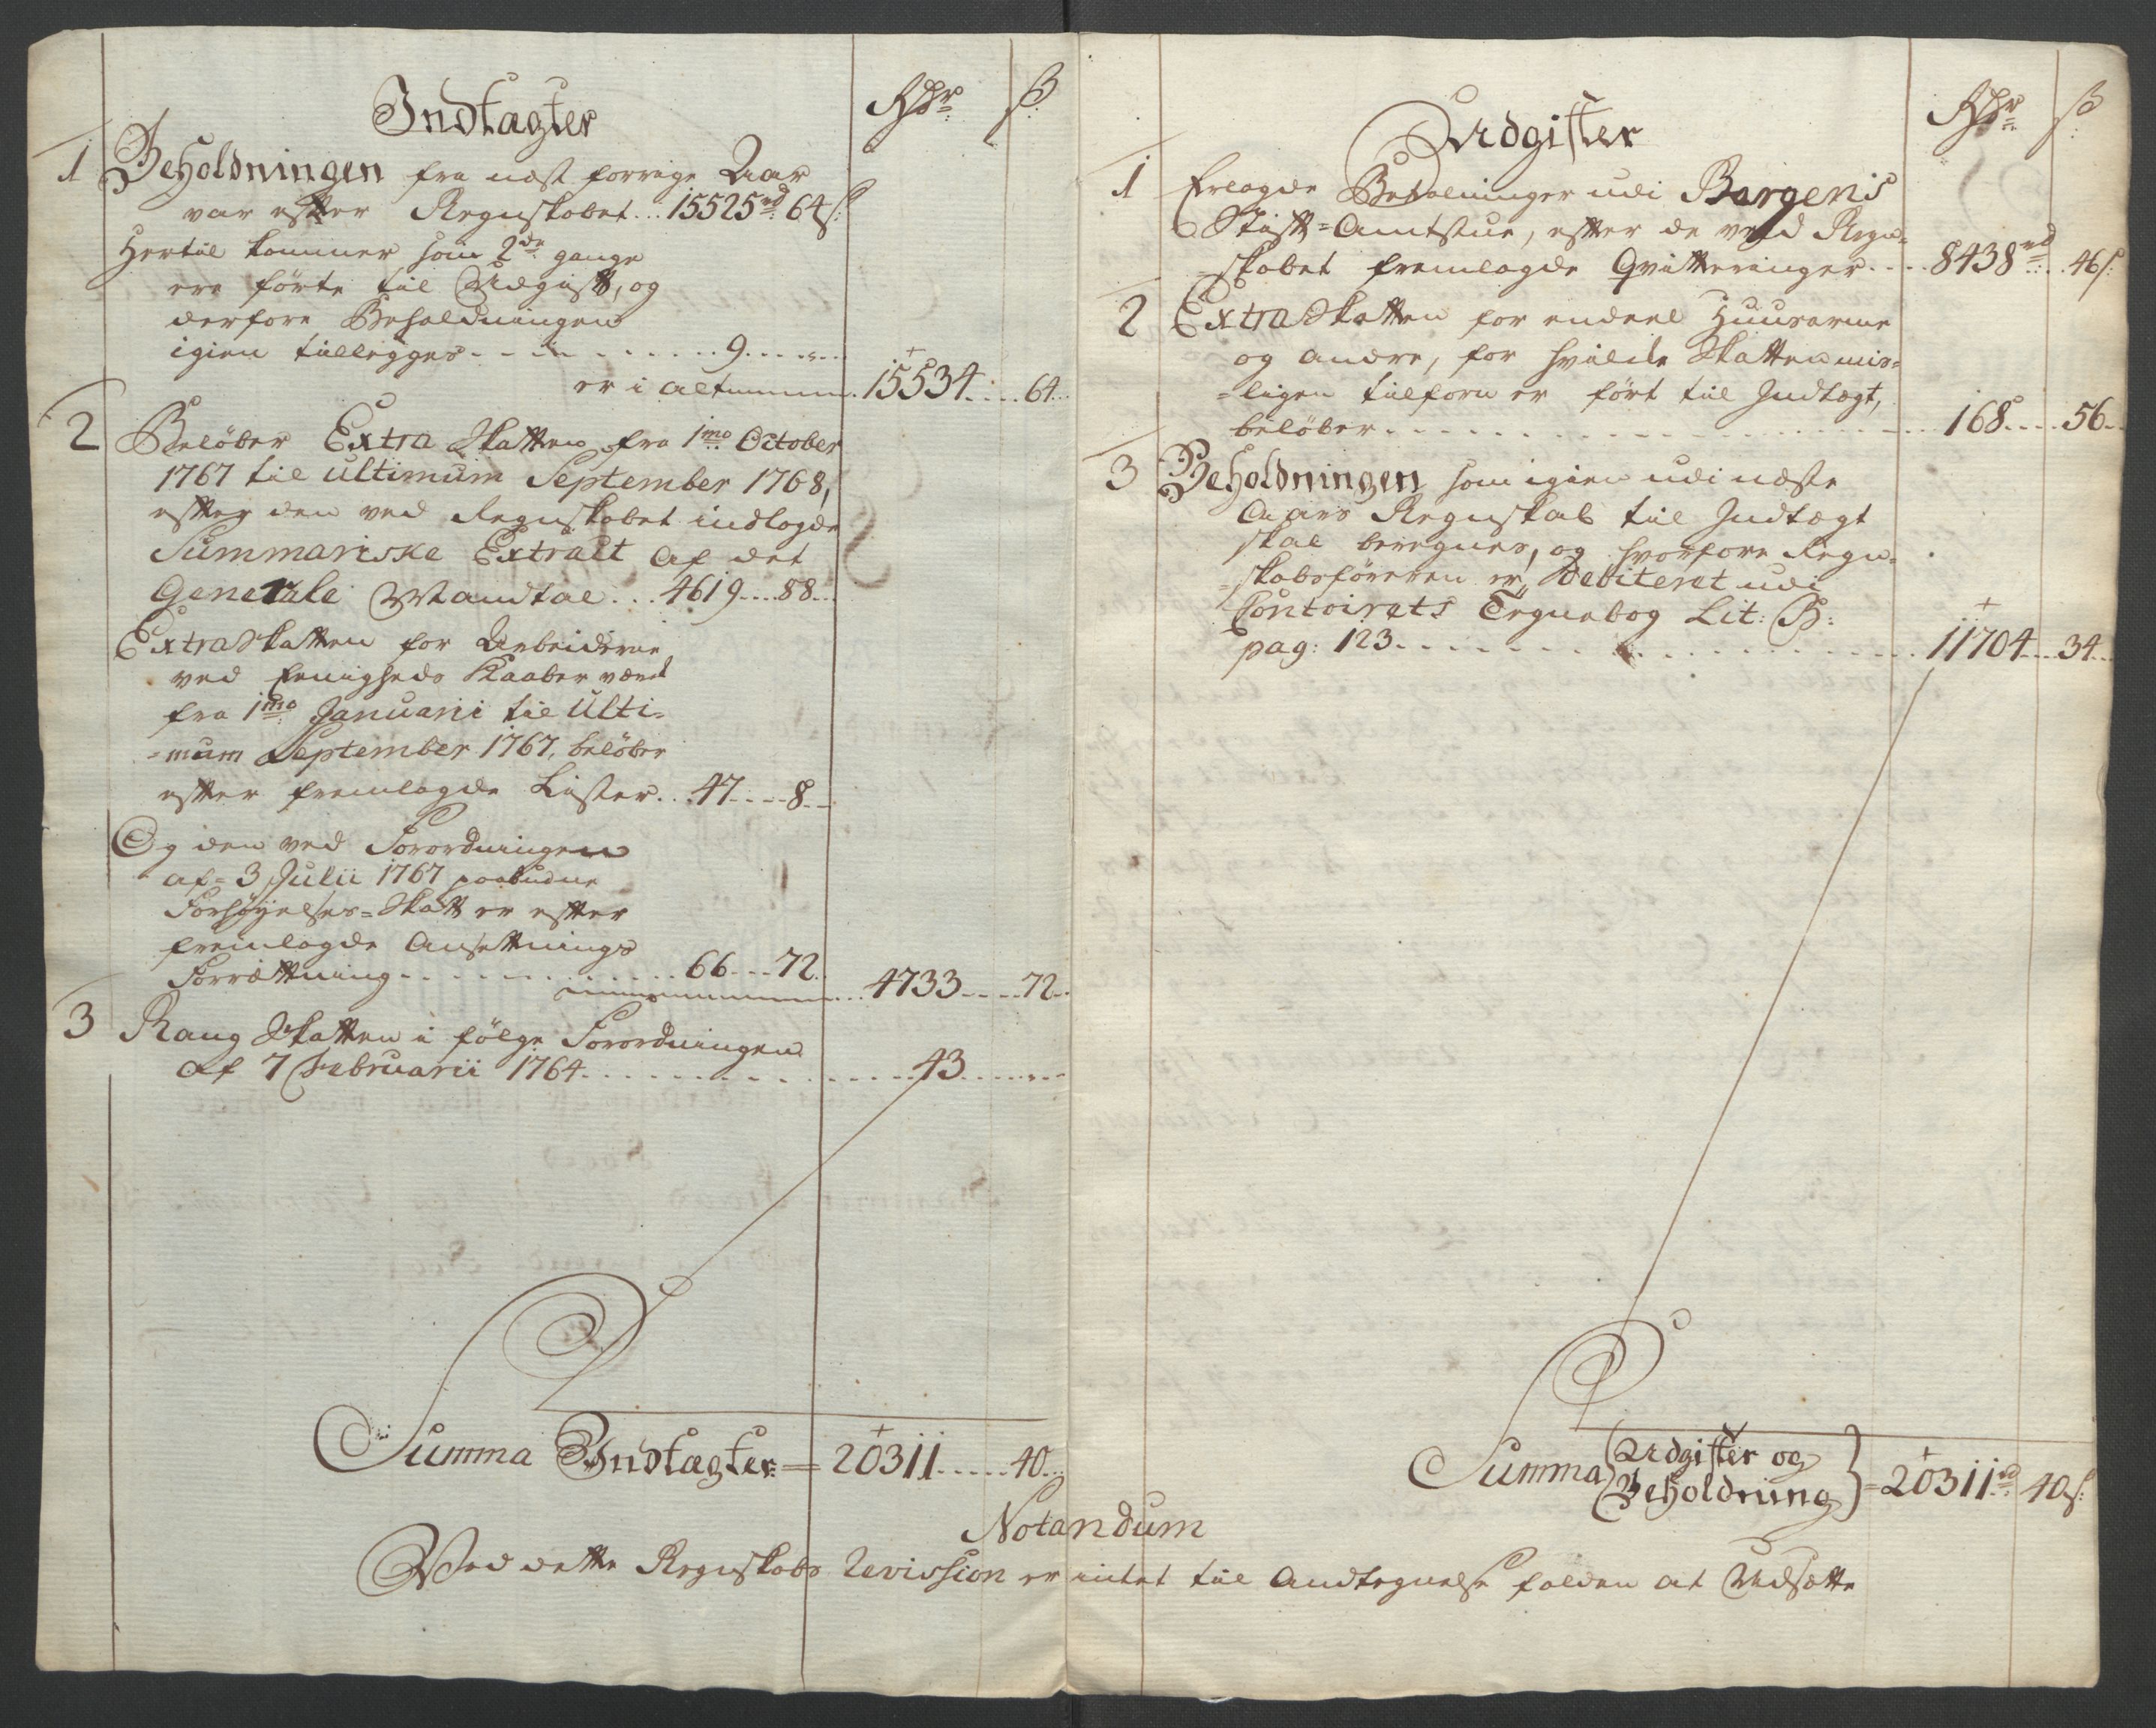 Indtægter
Rdr ß
1 Beholdningen fra næst forrige Aar
var efter Regnskabet... 15525rd 64ß:
Hertil kommer som 2de gange
ere förte til Udgift, og
derfore Beholdningen
igien tillegges 9
er i alt 15534 64
2 Belöber Extra Skatten fra 1mo October
1767 til ultimum September 1768,
efter den ved Regnskabet indlagde
Summariske Extract af det
Generale Mandtal... 4619 88
Extra Skatten for Arbeiderne
ved Eenigheds Kaaber værk
fra 1mo Januarii til Ulti-
=mum September 1767, belöber
efter fremlagde Lister... 47 8
Og den ved Forordningen
af 3 Julii 1767 paabudne
Forhöyelses=Skatt er efter
fremlagde Ansettnings
Forrættning 66 72
4733 72
3 Rang Skatten i fölge Forordningen
af 7 Februarii 1764 43
Summa Indtægter = 20311 40
Udgifter
Rdr ß
1 Erlagde Betalninger udi Bergens
Stift=Amtstue, efter de ved Regn=
=skabet fremlagde Qvitteringer 8438rd 46ß:
2 Extra Skatten for endeel Huusarme
og andre, for hvilcke Skatten mis=
=ligen tilforn er fört til Indtægt,
belöber 168 56
3 Beholdningen som igien udi næste
Aars Regnskab til Indtægt
skal beregnes, og hvorfore Regn=
=skabsföreren er Debiteret udi
Contoirets Tegnebog Lit: B:
pag: 123 11704 34
Summa Udgifter og
Beholdning = 20311rd 40ß:
Notandum
Ved dette Regnskabs Revission er intet til Andtegnelse falden at Udsætte